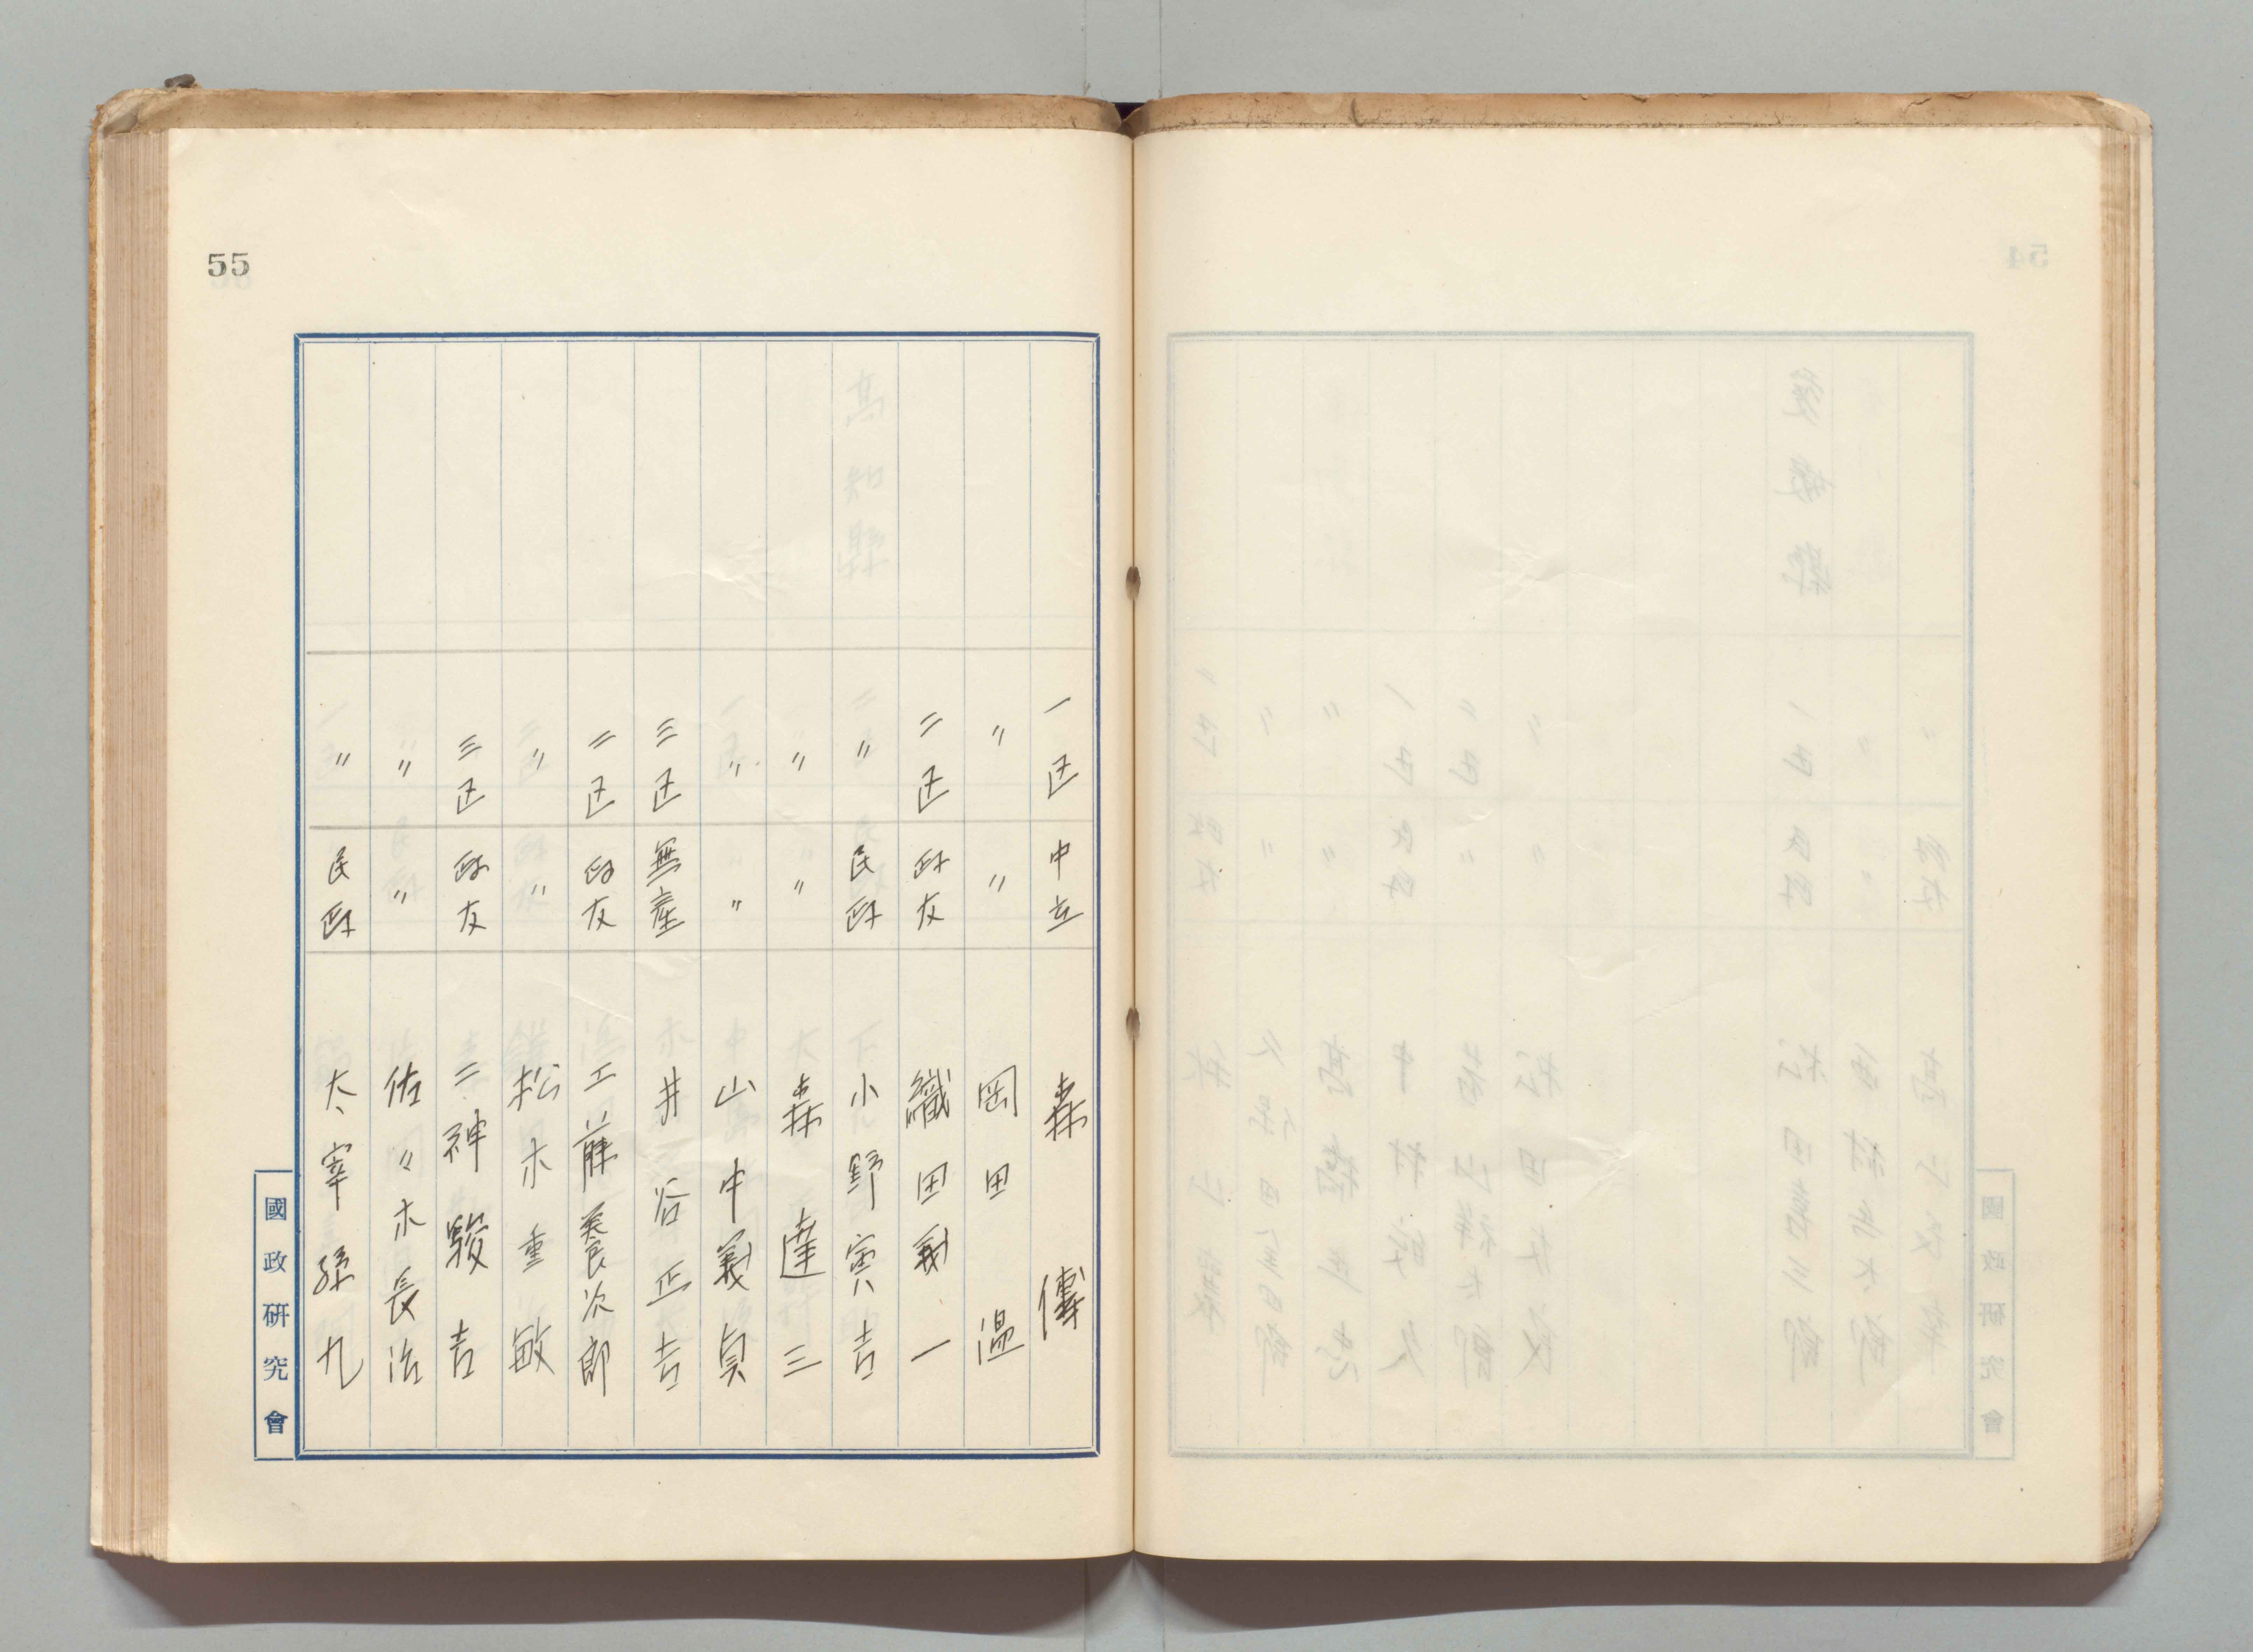 55
一区 中立 森 傳
〃 〃 岡田 温
二区 政友 織田 一
〃 民政 小野寅吉
〃 〃 森 達三
〃 〃 山中義貞
三区 無產 井谷正吉
二区 政友 工藤養次郎
〃 〃 松木重敏
三区 政友 二神駿吉
〃 〃 佐々木長治
〃 民政 太宰孫九
國政研究會